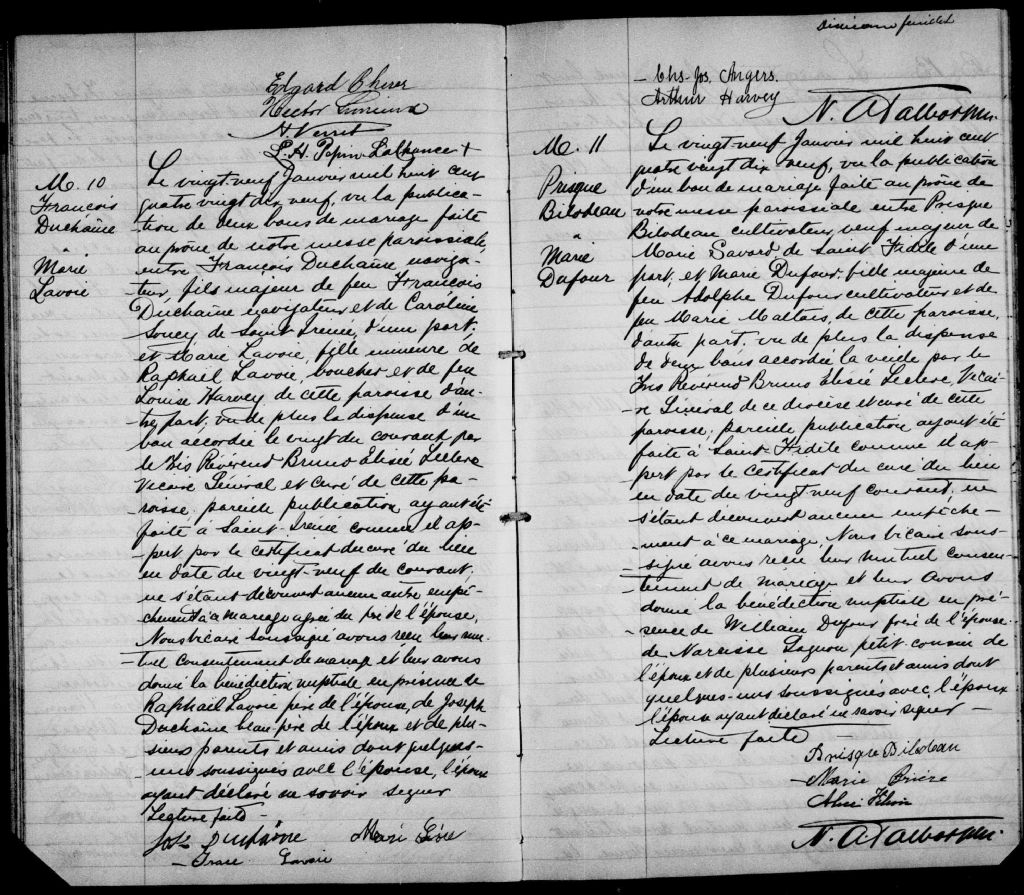 Edgard
Hector
H. Verret
L. H. Pepin Lachance +
M. 10
François
Duchaîne
&
Marie
Lavoie
Le vingt-neuf Janvier mil huit cent
quatre vingt dix neuf, vu la publica-
-tion de deux bans de mariage faite
au prône de notre messe paroissiale
entre François Duchaîne naviga-
-teur, fils majeur de feu François
Duchaine navigateur et de Caroline
Soucy, de Saint Irenée, d'une part;
et Marie Lavoie, fille mineure de
Raphaël Lavoie, boucher et de feu
Louise Harvey de cette paroisse d'au-
-tre part, vu de plus la dispense d'un
ban accordée le vingt du courant par
le très Révérend Bruno Elisée Leclerc
Vicaire Général et curé de cette pa-
-roisse pareille publication ayant été
faite à Saint-Irenée comme il ap-
-pert par le certificat du curé du lieu
en date du vingt-neuf du courant,
ne s'étant découvert aucun autre empê-
-chement à ce mariage agrée du père de l'épouse,
Nous vicaire soussigné avons reçu leur mu-
-tuel consentement de mariage et leur avons
donné la bénédiction nuptiale en présence de
Raphaël Lavoie père de l'épouse, de Joseph
Duchaîne beau-père de l'époux et de plu-
-sieurs parents et amis dont quelques-
-uns soussignés avec l'épouse, l'époux
ayant déclaré ne savoir signer
Lecture faite
Jos Duchaîne
Lavoie
Dixième feuillet
- Chs-Jos. Angers.
Arthur Harvey
N. A. Talbot Ptre.
M. 11
Prisque
Bilodeau
&
Marie
Dufour
Le vingt-neuf Janvier mil huit cent
quatre vingt dix neuf, vu la publication
d'un ban de mariage faite au prône de
notre messe paroissiale entre Prisque
Bilodeau cultivateur, veuf majeur de
Marie Savard de Saint Fidèle d'une
part, et Marie Dufour, fille majeure de
feu Adolphe Dufour cultivateur et de
feu Marie Maltais, de cette paroisse,
d'autre part, vu de plus la dispense
de deux bans accordée la veille par le
très Révérend Bruno Elisée Leclerc, Vicai-
-re Général de ce diocèse et curé de cette
paroisse; pareille publication ayant été
faite à Saint-Fidèle comme il ap-
-pert par le certificat du curé du lieu
en date du vingt neuf courant; ne
s'étant découvert aucun empêche-
-ment à ce mariage, Nous vicaire sous-
-signé avons reçu leur mutuel consen-
-tement de mariage et leur avons
donné la bénédiction nuptiale en pré-
-sence de William Dufour frère de l'épouse,
de Narcisse Gagnon, petit cousin de
l'époux et de plusieurs parents et amis dont
quelques-uns soussignés avec l'époux
l'épouse ayant déclaré ne savoir signer -
Lecture faite
Prisque Bilodeau
Marie
N. A. Talbot Ptre.